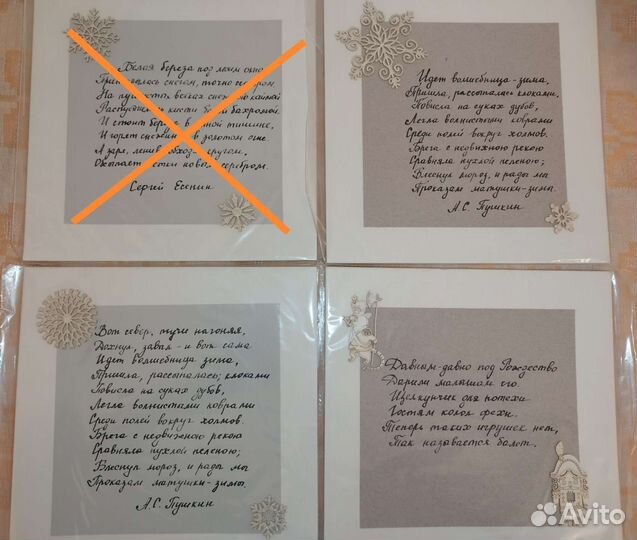 Белая береза под моим окно
Принакрылась снегом, точно серебром.
На пушистых ветках снежною каймой
Распустились кисти белой бахромой.
И стоит береза в сонной тишине,
И горят снежинки в золотом огне
А заря, лениво обходя кругом,
Обсыпает ветки новым серебром.
Сергей Есенин
Идет волшебница-зима,
Пришла, рассыпалась клоками.
Повисла на суках дубов,
Легла волнистыми коврами
Среди полей вокруг холмов.
Брега с недвижною рекою
Сравняла пухлой пеленою;
Блеснул мороз, и рады мы
Проказам матушки-зимы
А.С. Пушкин
Вот север, тучи нагоняя,
Дохнул, завыл - и вот сама
Идет волшебница зима,
Пришла, рассыпалась; клоками
Повисла на суках дубов,
Легла волнистыми коврами
Среди полей вокруг холмов.
Брега с недвижною рекою
Сравняла пухлой пеленою;
Блеснул мороз, и рады мы
Проказам матушки-зимы.
А.С. Пушкин
Давным-давно под Рождество
Дарили малышам его.
Щелкунчик для потехи
Гостям колол орехи.
Теперь таких игрушек нет,
Так называется балет.
Avito